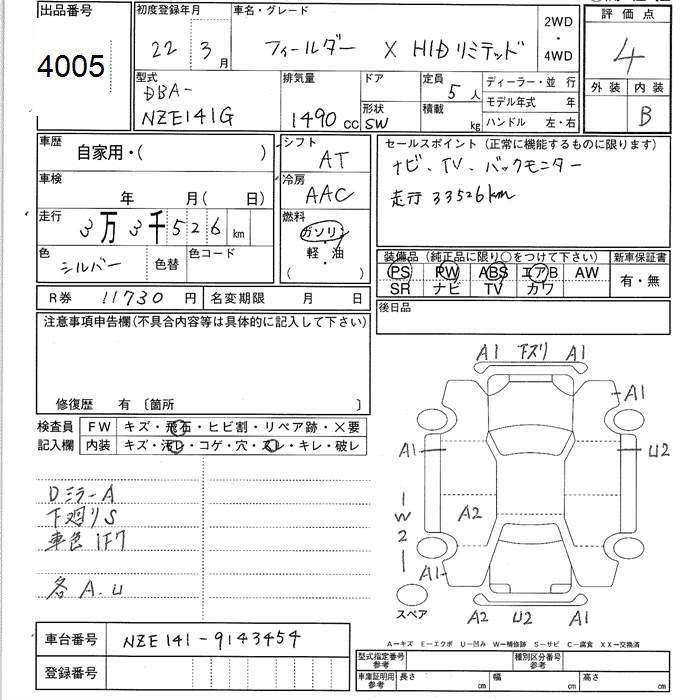 出品番号
4005
初度登録年月
22 3月
車名・グレード
フィールダー X HIDリミテッド
2WD
・
4WD
評価点
4
外装 内装
B
型式
DBA-
NZE141G
排気量
1490 cc
ドア
形状
SW
定員
5人
積載
kg
ディーラー・並行
モデル年式 年
ハンドル 左・右
車歴
自家用・( )
車検
年 月( 日)
走行
3万3千526km
色
シルバー
色替
色コード
シフト
AT
冷房
AAC
燃料
ガソリン
軽・油
( )
セールスポイント(正常に機能するものに限ります)
ナビ、TV、バックモニター
走行 33526km
装備品(純正品に限り○をつけて下さい)
新車保証書
PS PW ABS エアB AW
SR ナビ TV カワ
有・無
R券 11730円
名変期限 月 日
後日品
注意事項申告欄(不具合内容等は具体的に記入して下さい)
修復歴 有 〔箇所 〕
検査員
記入欄
FW キズ・飛石・ヒビ割・リペア跡・×要
内装 キズ・汚レ・コゲ・穴・スレ・キレ・破レ
DミラーA
下廻りS
車色 1F7
各 A.U
A1 下スリ A1
A1
A1
U2
A2
W2
A1
スペア
A2 U2 A1
A―キズ E―エクボ U―凹み W―補修跡 S―サビ C―腐食 XX―交換済
車台番号
NZE141-9143454
登録番号
型式指定番号
参考
種別区分番号
参考
車庫証明用
参考
長さ cm
幅 cm
高さ cm